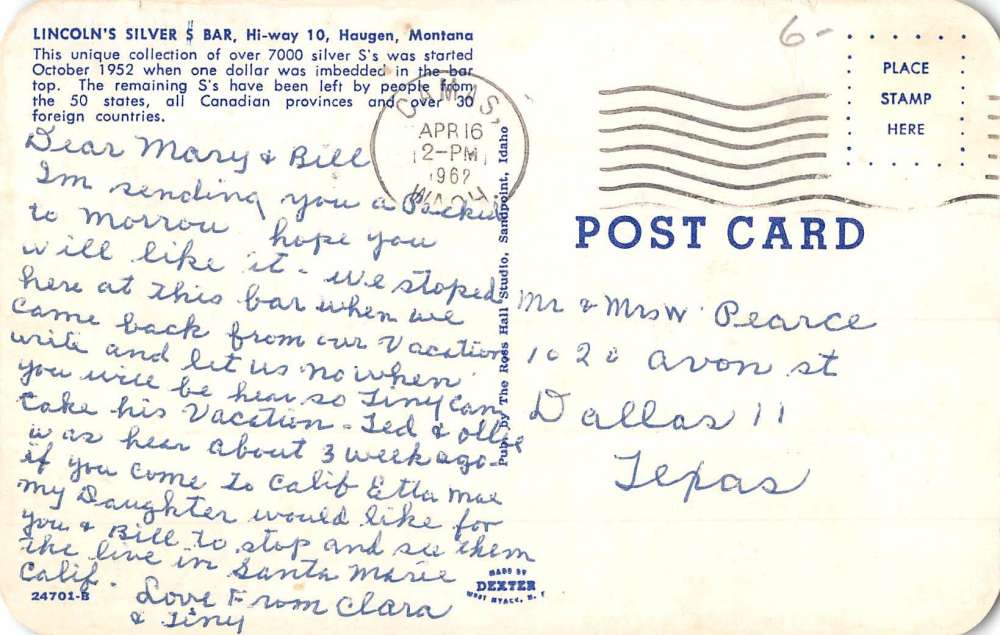 LINCOLN'S SILVER $ BAR, Hi-way 10, Haugen, Montana
This unique collection of over 7000 silver S's was started
October 1952 when one dollar was imbedded in the bar
top. The remaining S's have been left by people from
the 50 states, all Canadian provinces and over 30
foreign countries.
Dear Mary & Bill
Im sending you a
to morrow hope you
will like it - we stoped
here at this bar when we
came back from our Vacation
write and let us no when
you will be hear so Tiny can
take his Vacation - Ted & Ollie
was hear about 3 week ago -
if you come to Calif Etta Mae
my Daughter would like for
you & Bill to stop and see them
the live in Santa Marie
Calif.
Love From Clara
& Tiny
24701-B
CAMAS,
APR 16
2-PM
1962
WASH
Pub. by The Ross Hall Studio, Sandpoint, Idaho
MADE BY
DEXTER
WEST NYACK, N. Y.
6-
PLACE
STAMP
HERE
POST CARD
Mr & Mrs W. Pearce
1020 Avon st
Dallas 11
Texas